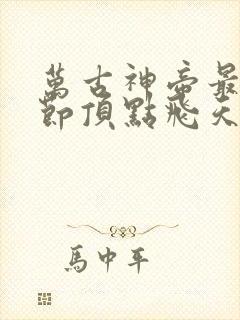 萬古神帝最
節頂點飛天
馬中平